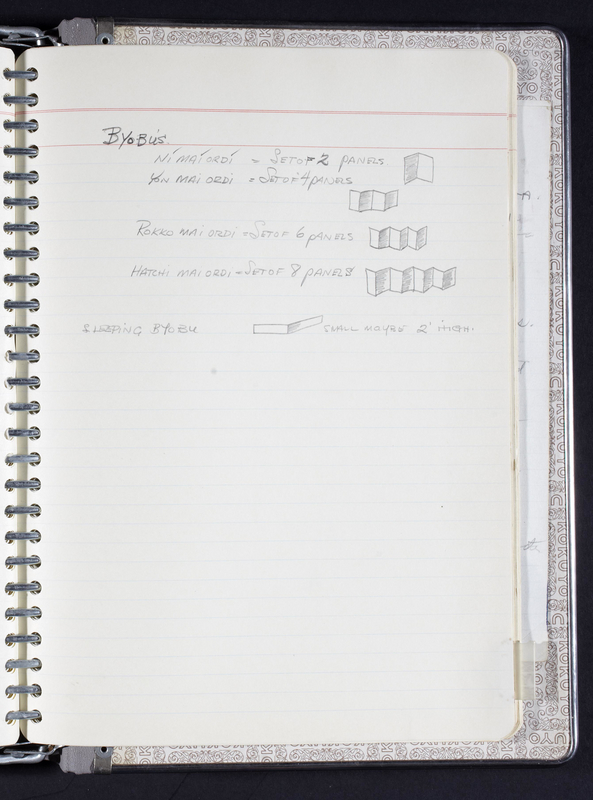 BYOBU'S.
NI MAI ORDI = SET OF 2 PANELS
YON MAI ORDI = SET OF 4 PANELS
ROKKO MAI ORDI = SET OF 6 PANELS
HATCHI MAI ORDI = SET OF 8 PANELS
SLEEPING BYOBU SMALL MAYBE 2' HIGH.